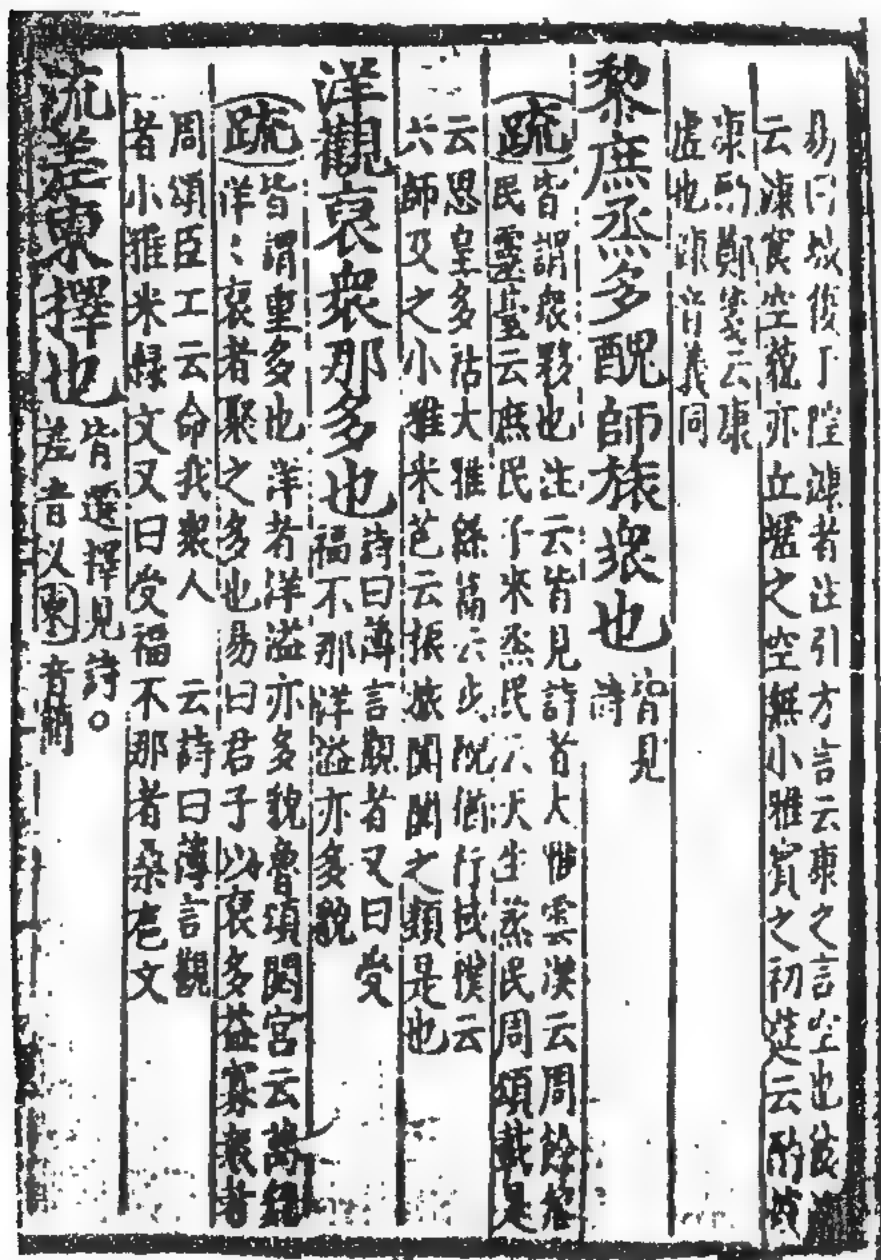 易曰城復于隍漮者注引方言云漮之言空也
云漮食空貌亦丘墟之空無小雅賓之初筵云酌彼
康爵鄭箋云康
虛也漮音義同
黎庶烝多醜師旅衆也
皆見
詩
疏
皆謂衆夥也注云皆見詩者大雅雲漢云周餘黎
民靈臺云庶民子來烝民云天生烝民周頌載是
云思皇多祜大雅緜篇云戎醜攸行棫樸云
六師及之小雅采芑云振旅闐闐之類是也
洋觀裒衆那多也
詩曰薄言觀者又曰受
福不那洋溢亦多貌
疏
皆謂重多也洋者洋溢亦多貌魯頌閟宮云萬
洋〻裒者聚之多也易曰君子以裒多益寡衆者
周頌臣工云命我衆人　云詩曰薄言觀
者小雅采緑文又曰受福不那者桑扈文
流差柬擇也
皆選擇見詩○
差音乂柬音簡